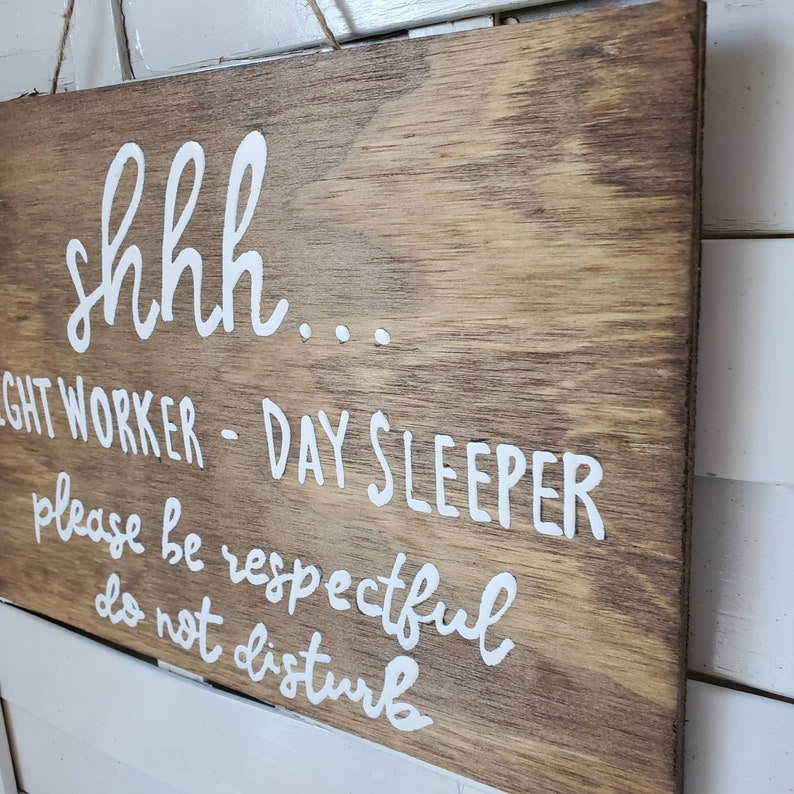 shhh...
IGHT WORKER - DAY SLEEPER
please be respectful
do not disturb